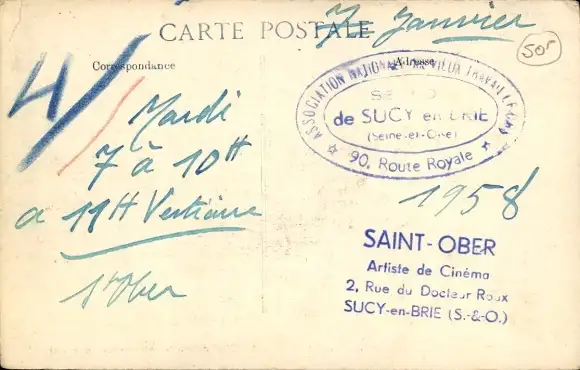 CARTE POSTALE
7 Janvier
50F
Correspondance
Adresse
4
Mardi
7 à 10H
a 11H Vestiaire
St Ober
ASSOCIATION NATIONALE
VIEUX TRAVAILLEURS
de SUCY en BRIE
(Seine-et-Oise)
90, Route Royale
1958
SAINT-OBER
Artiste de Cinéma
2, Rue du Docteur Roux
SUCY-en-BRIE (S.-&-O.)